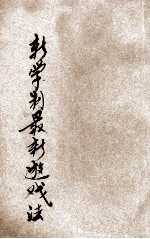 新学制最新游戏法